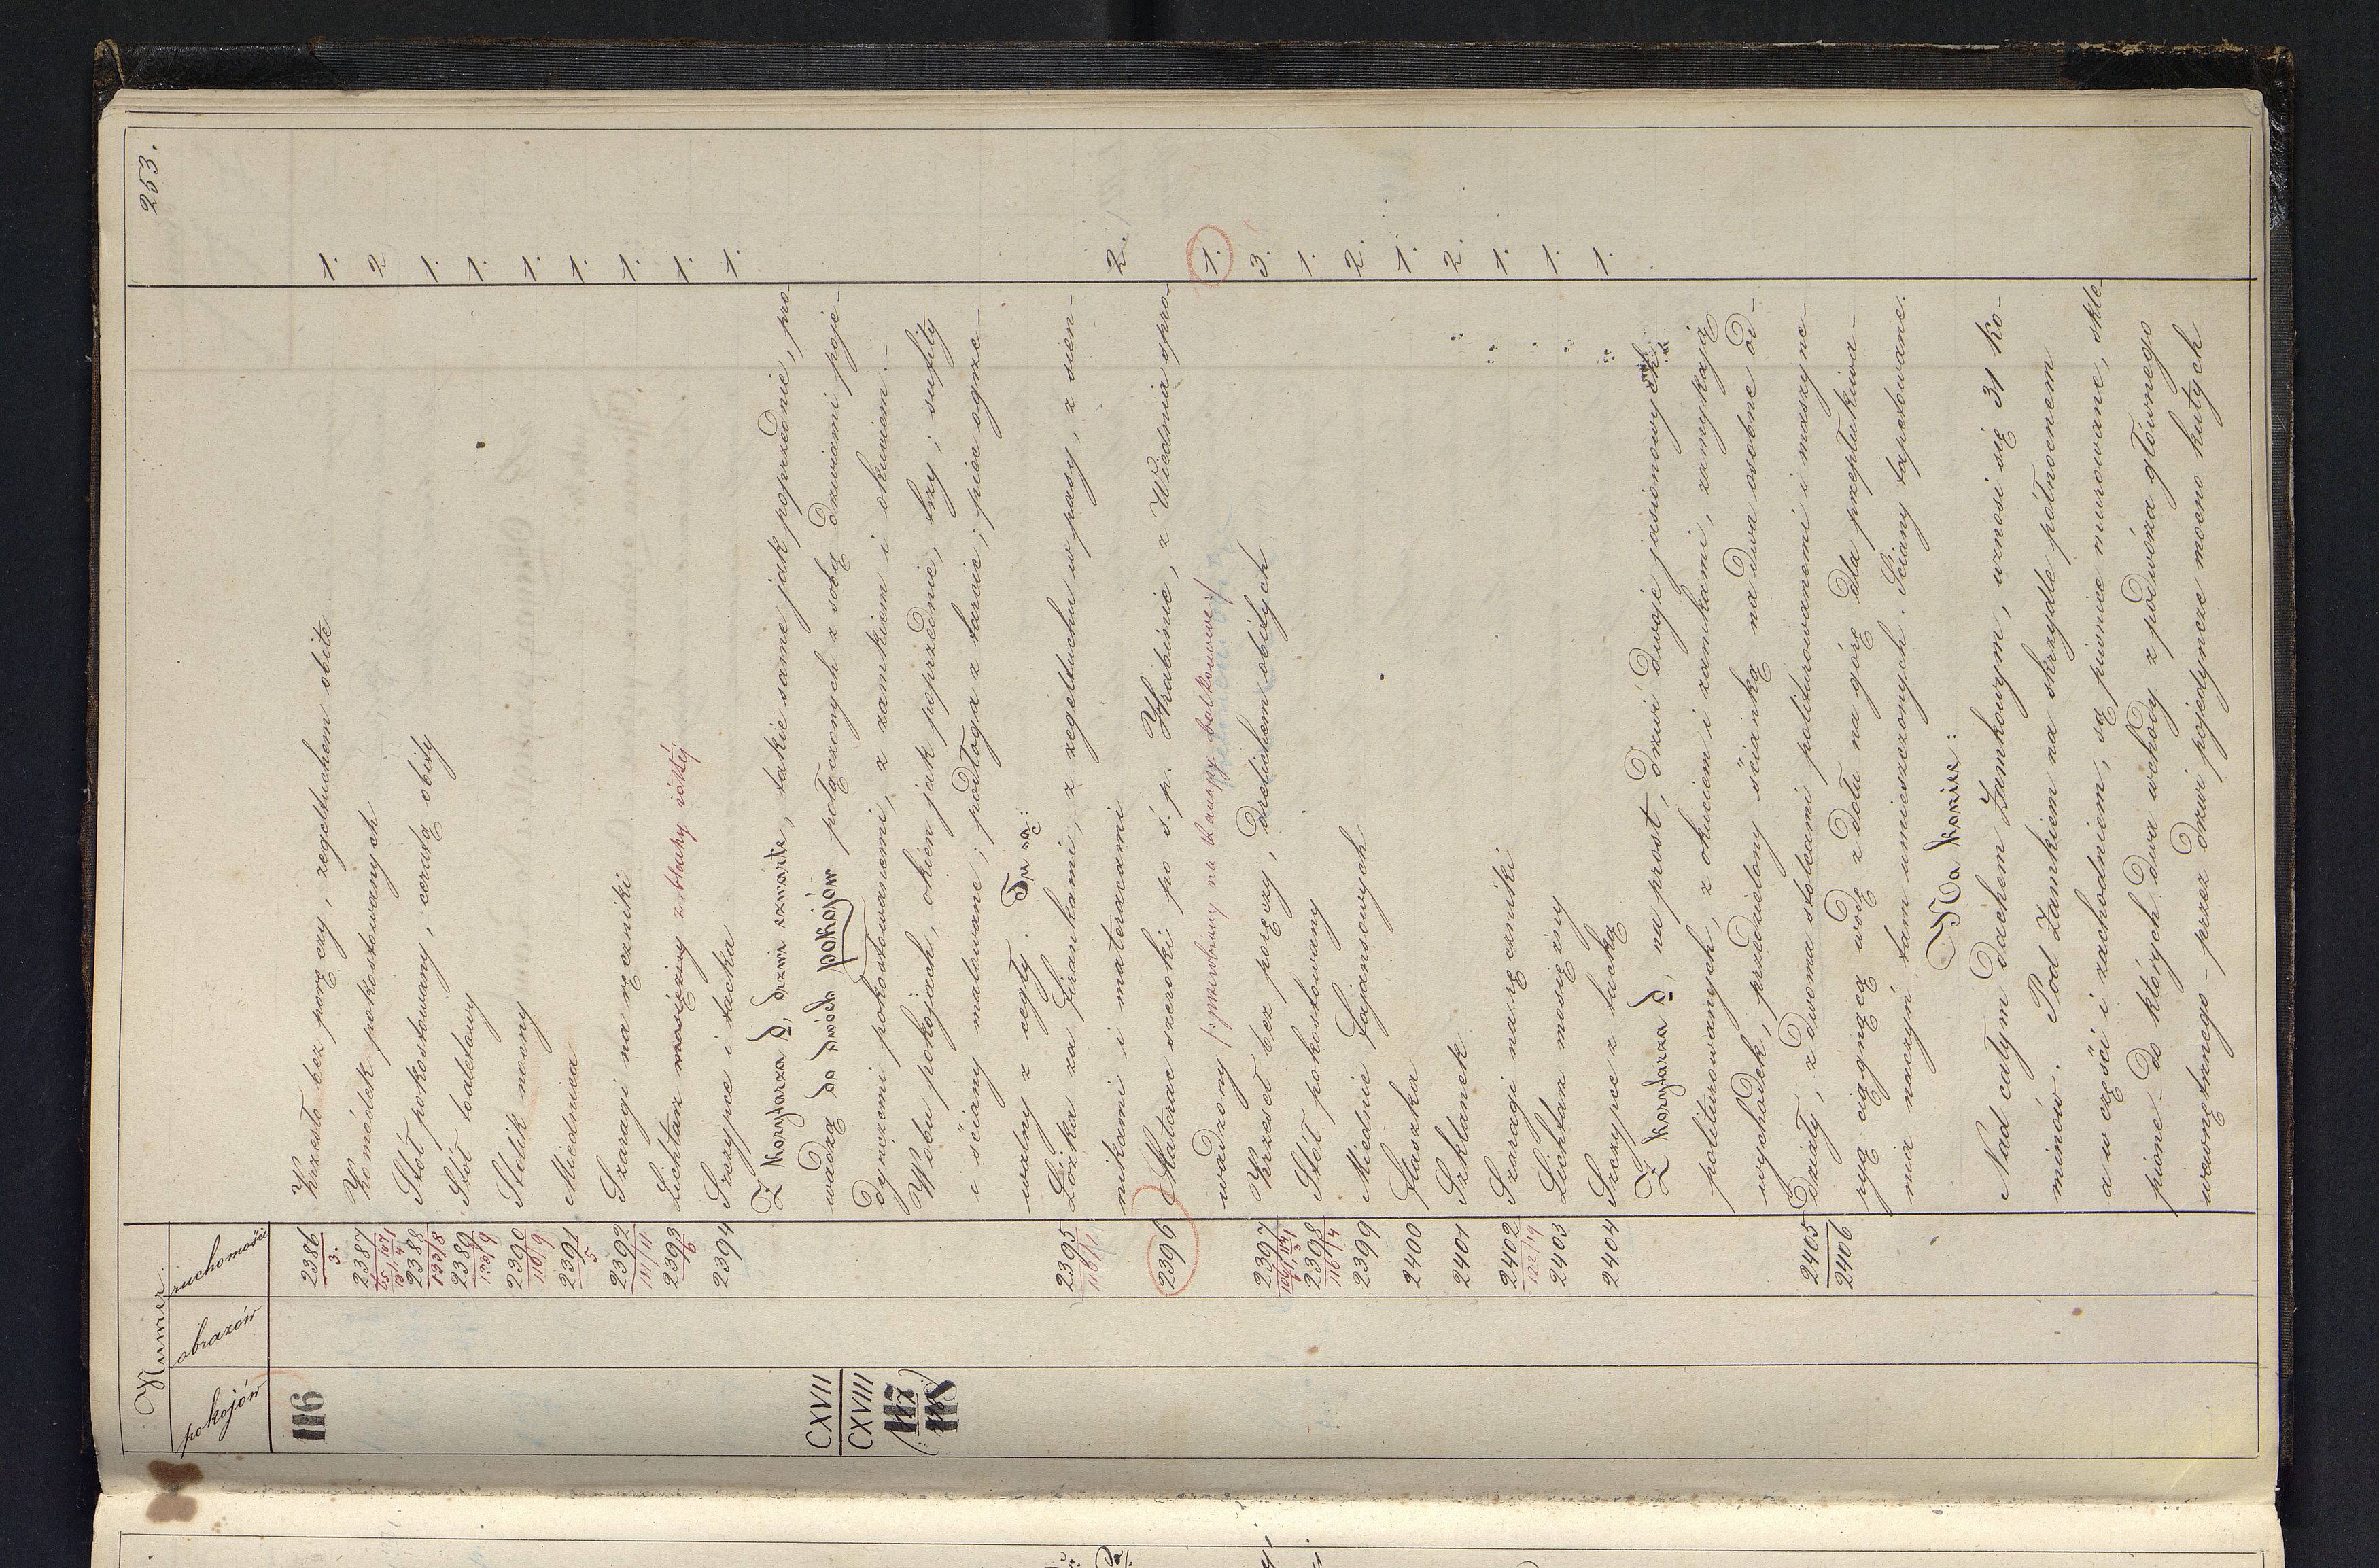 253.
Numer
pokojów obrazów ruchomości
116 2386 Krzesło bez poręczy, zegeltuchem obite 1.
3.
2387 Komódek pokostowanych 2
2388 Stół pokostowany, ceratą obity 1.
133/8
2389 Stół toaletowy 1.
2390 Stolik nocny 1.
110/9
2391 Miednica 1.
5
2392 Szaragi na ręczniki 1.
111/11
2393 Lichtarz mosiężny z blachy żółtej 1.
6
2394 Szczypce i tacka 1.
Z korytarza d, drzwi czwarte, takie same jak poprzednie, pro-
CXVII wadzą do dwóch pokojów połączonych z sobą drzwiami poje-
CXVIII dyńczemi pokostowanemi, z zamkiem i okuciem.
117 W obu pokojach, okien jak poprzednie, trzy; sufity
118 i ściany malowane; podłoga z tarcic; piec ogrze-
walny z cegły. Tu są:
2395 Łóżka za firankami, z zegeltuchu w pasy, z sien- 2.
116/11
nikami i materacami
2396 Materac szeroki po ś.p. Hrabinie, z Wiednia spro- 1.
wadzony /:przerobiony na kanapy balkonowe:/
2397 Krzeseł bez poręczy, drelichem obitych 3.
2398 Stół pokostowany 1.
116/4
2399 Miednic fajansowych 2.
2400 Flaszka 1.
2401 Szklanek 2.
2402 Szaragi na ręczniki 1.
122/19
2403 Lichtarz mosiężny 1.
2404 Szczypce z tacką 1.
Z korytarza d, na prost, drzwi dwoje jasionowych,
politurowanych, z okuciem i zamkami, zamykają
wychodek, przedzielony ścianką na dwa osobne od-
2405 działy, z dwoma stolcami politurowanemi i maszyne-
2406 ryą ciągnącą wodę z dołu na górę dla przepłukiwa-
nia naczyń tam umieszczonych. Ściany tapetowane.
Na koniec:
Nad całym dachem Zamkowym, wznosi się 31 ko-
minów. Pod Zamkiem na skrzydle północnem
a w części i zachodniem, są piwnice murowane, skle-
pione - do których dwa wchody z podwórza głównego
wewnętrznego - przez drzwi pojedyncze mocno kutych